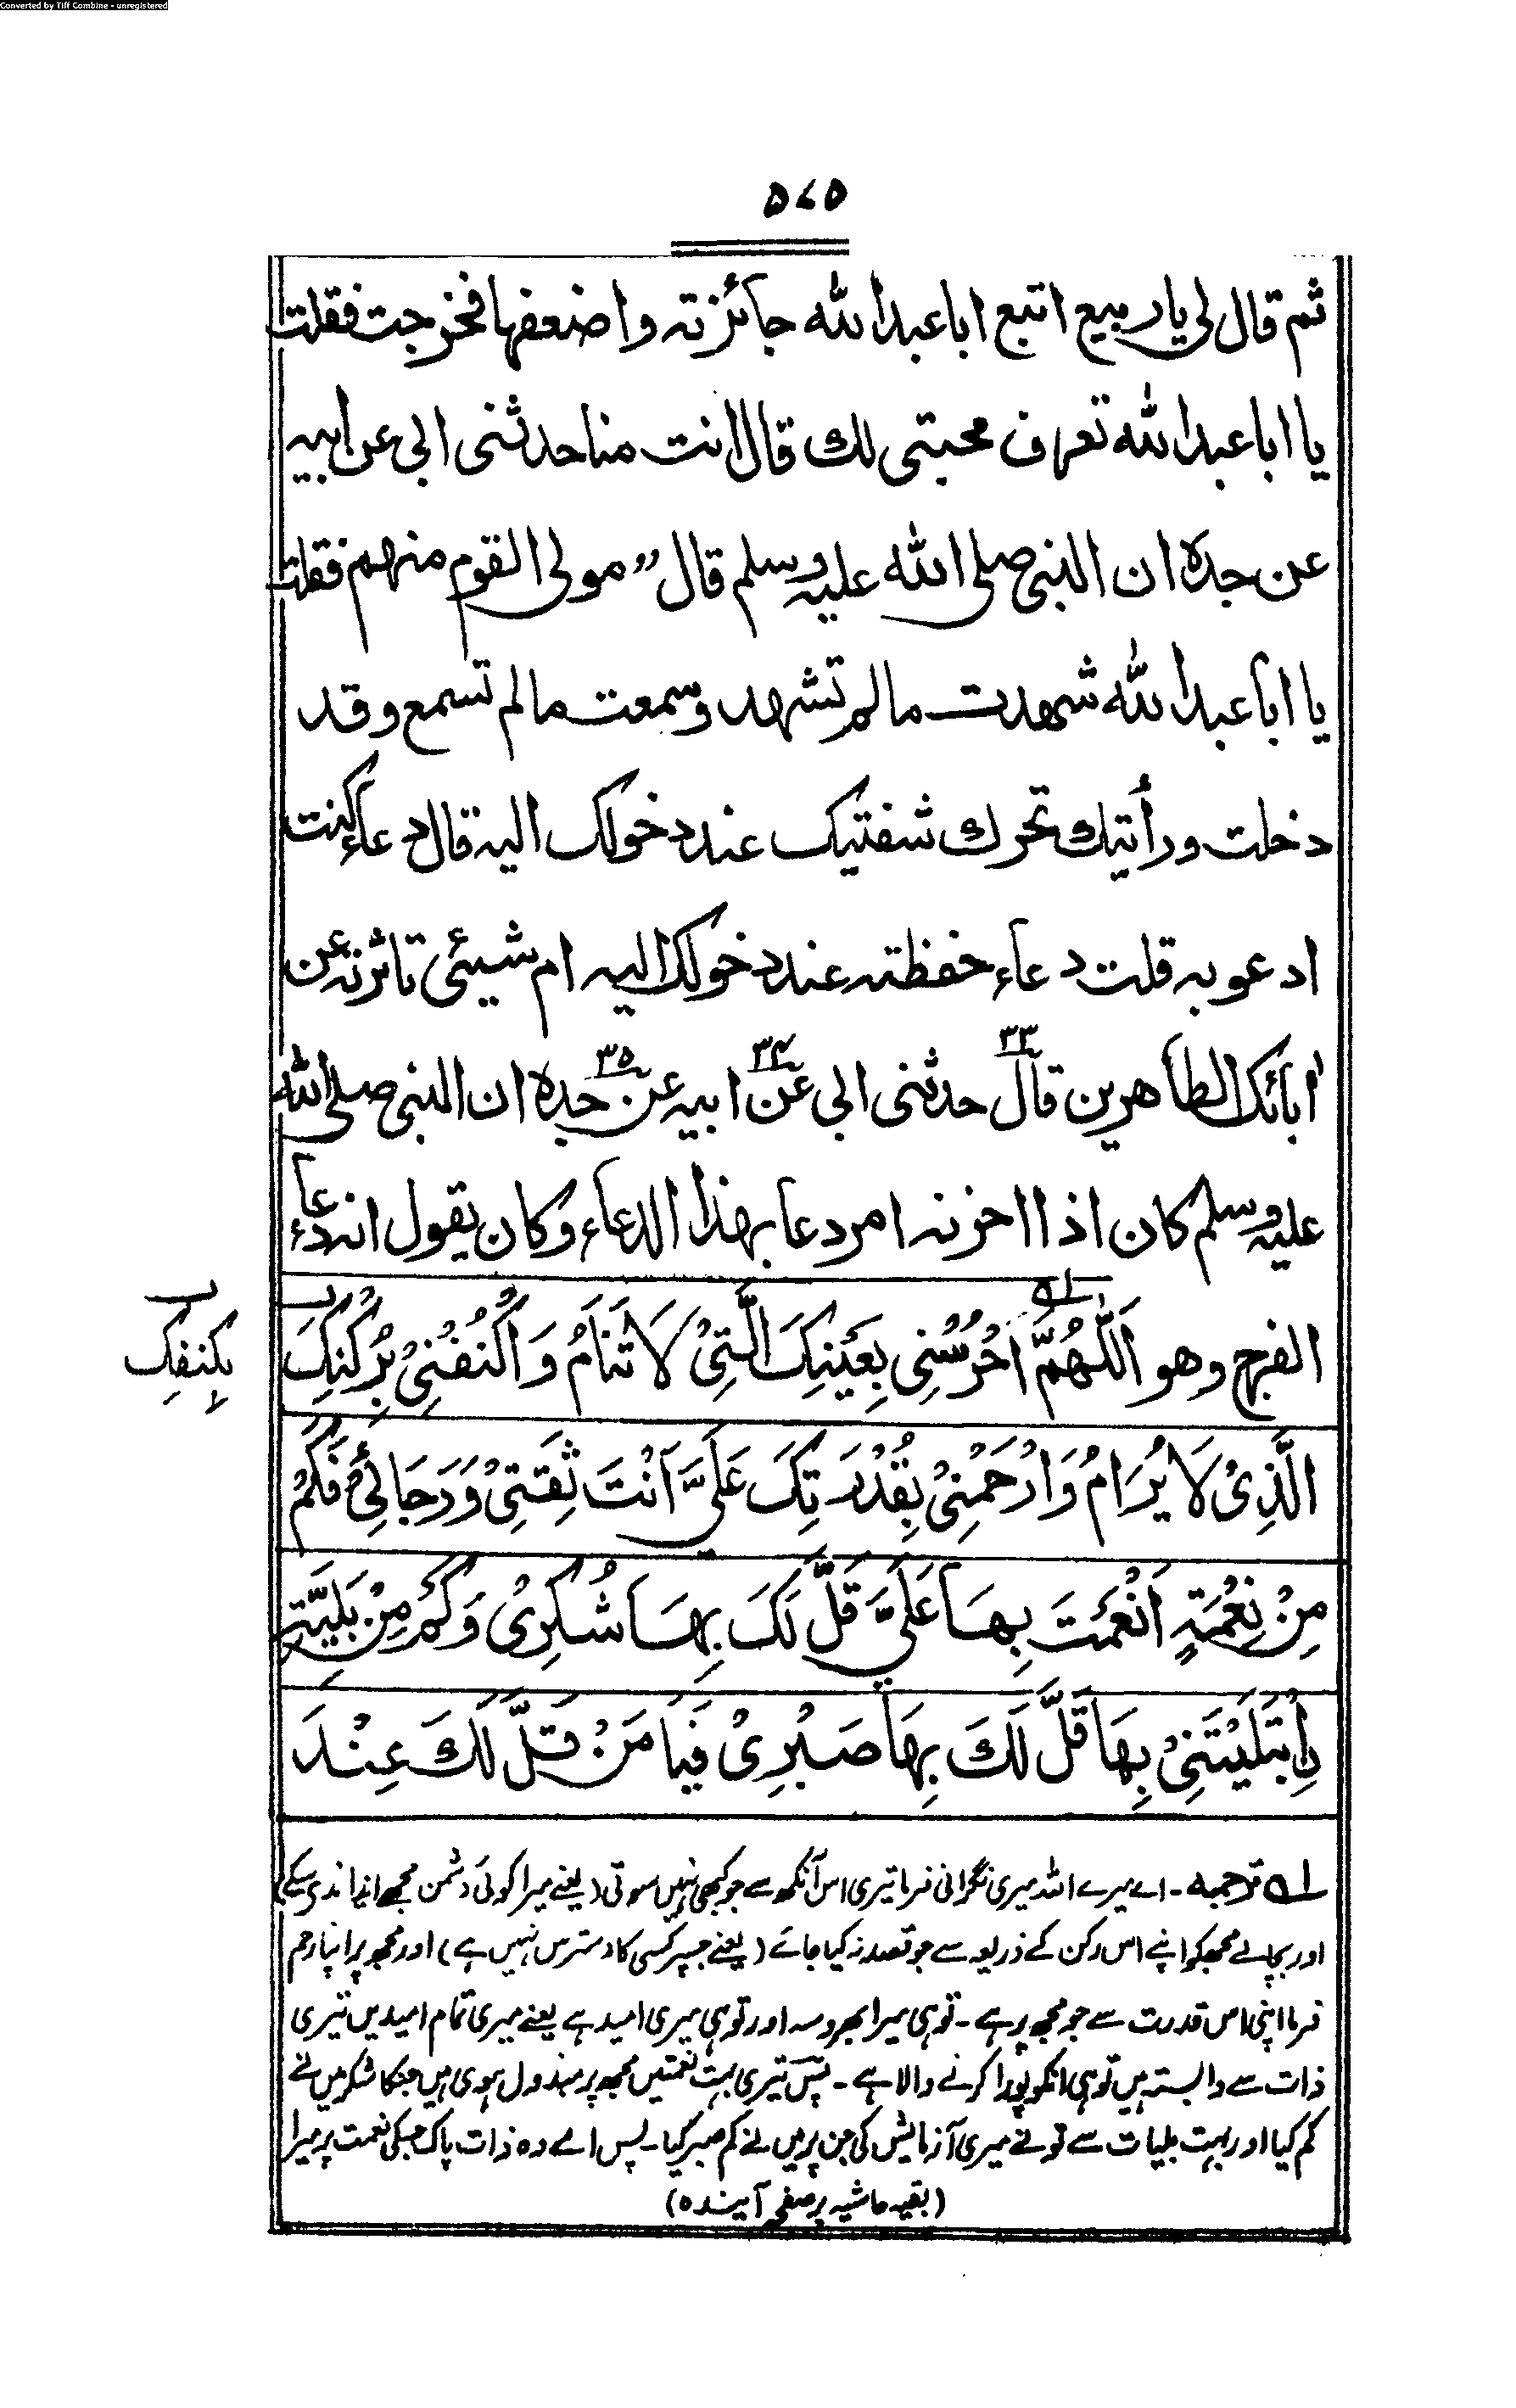 Converted by Tiff Combine - unregistered
۵۷۵
ثم قال لی یا ربیع اتبع ابا عبد الله جائزته واضعفها فخرجت فقلت
یا ابا عبد الله تعرف محبتی لک قال انت منا حدثنی ابی عن ابیه
عن جده ان النبی صلی الله علیه وسلم قال ”مولی القوم منهم فقلت
یا ابا عبد الله شهدت مالم تشهد وسمعت مالم تسمع وقد
دخلت ورأیتک تحرک شفتیک عند دخولک الیه قال دعاء کنت
ادعو به قلت دعاء حفظته عند دخولک الیه ام شیئی تاثرته عن
اٰبائک الطاهرین قال۳۳ حدثنی ابی عن۳۴ ابیه عن۳۵ جده ان النبی صلی الله
علیه وسلم کان اذا احزنه امر دعا بهذا الدعاء وکان یقول انه دعاء
الفرج وهو اَللّٰهُمَّ۱؎ احْرُسْنِی بِعَیْنِکَ الَّتِیْ لَا تَنَامُ وَاکْنُفْنِیْ بِرُکْنِکَ
ب بِکَنَفِکَ
الَّذِیْ لَا یُرَامُ وَارْحَمْنِیْ بِقُدْرَتِکَ عَلَیَّ اَنْتَ ثِقَتِیْ وَرَجَائِیْ فَکَمْ
مِنْ نِعْمَةٍ اَنْعَمْتَ بِهَا عَلَیَّ قَلَّ لَکَ بِهَا شُکْرِیْ وَکَمْ مِنْ بَلِیَّةٍ
اِبْتَلَیْتَنِیْ بِهَا قَلَّ لَکَ بِهَا صَبْرِیْ فَیَا مَنْ قَلَّ لَکَ عِنْدَ
۱؎ ترجمہ۔ اے میرے اللہ میری نگرانی فرما تیری اس آنکھ سے جو کبھی نہیں سوتی (یعنے میرا کوئی دشمن مجھے ایذا ندی سکے)
اور بچالے مجھکو اپنے اس رکن کے ذریعہ سے جو قصد نہ کیا جائے (یعنے جسپر کسی کا دسترس نہیں ہے) اور مجھ پر اپنا رحم
فرما اپنی اس قدرت سے جو مجھ پر ہے۔ تو ہی میرا بھروسہ اور تو ہی میری امید ہے یعنے میری تمام امیدیں تیری
ذات سے وابستہ ہیں تو ہی انکو پورا کرنے والا ہے۔ پس تیری بہت نعمتیں مجھ پر مبذول ہوی ہیں جنکا شکر میں نے
کم کیا اور بہت بلیات سے تو نے میری آزمایش کی جن پر میں نے کم صبر کیا۔ پس اے وہ ذات پاک جسکی نعمت پر میرا
(بقیہ حاشیہ بر صفحہ آیندہ)